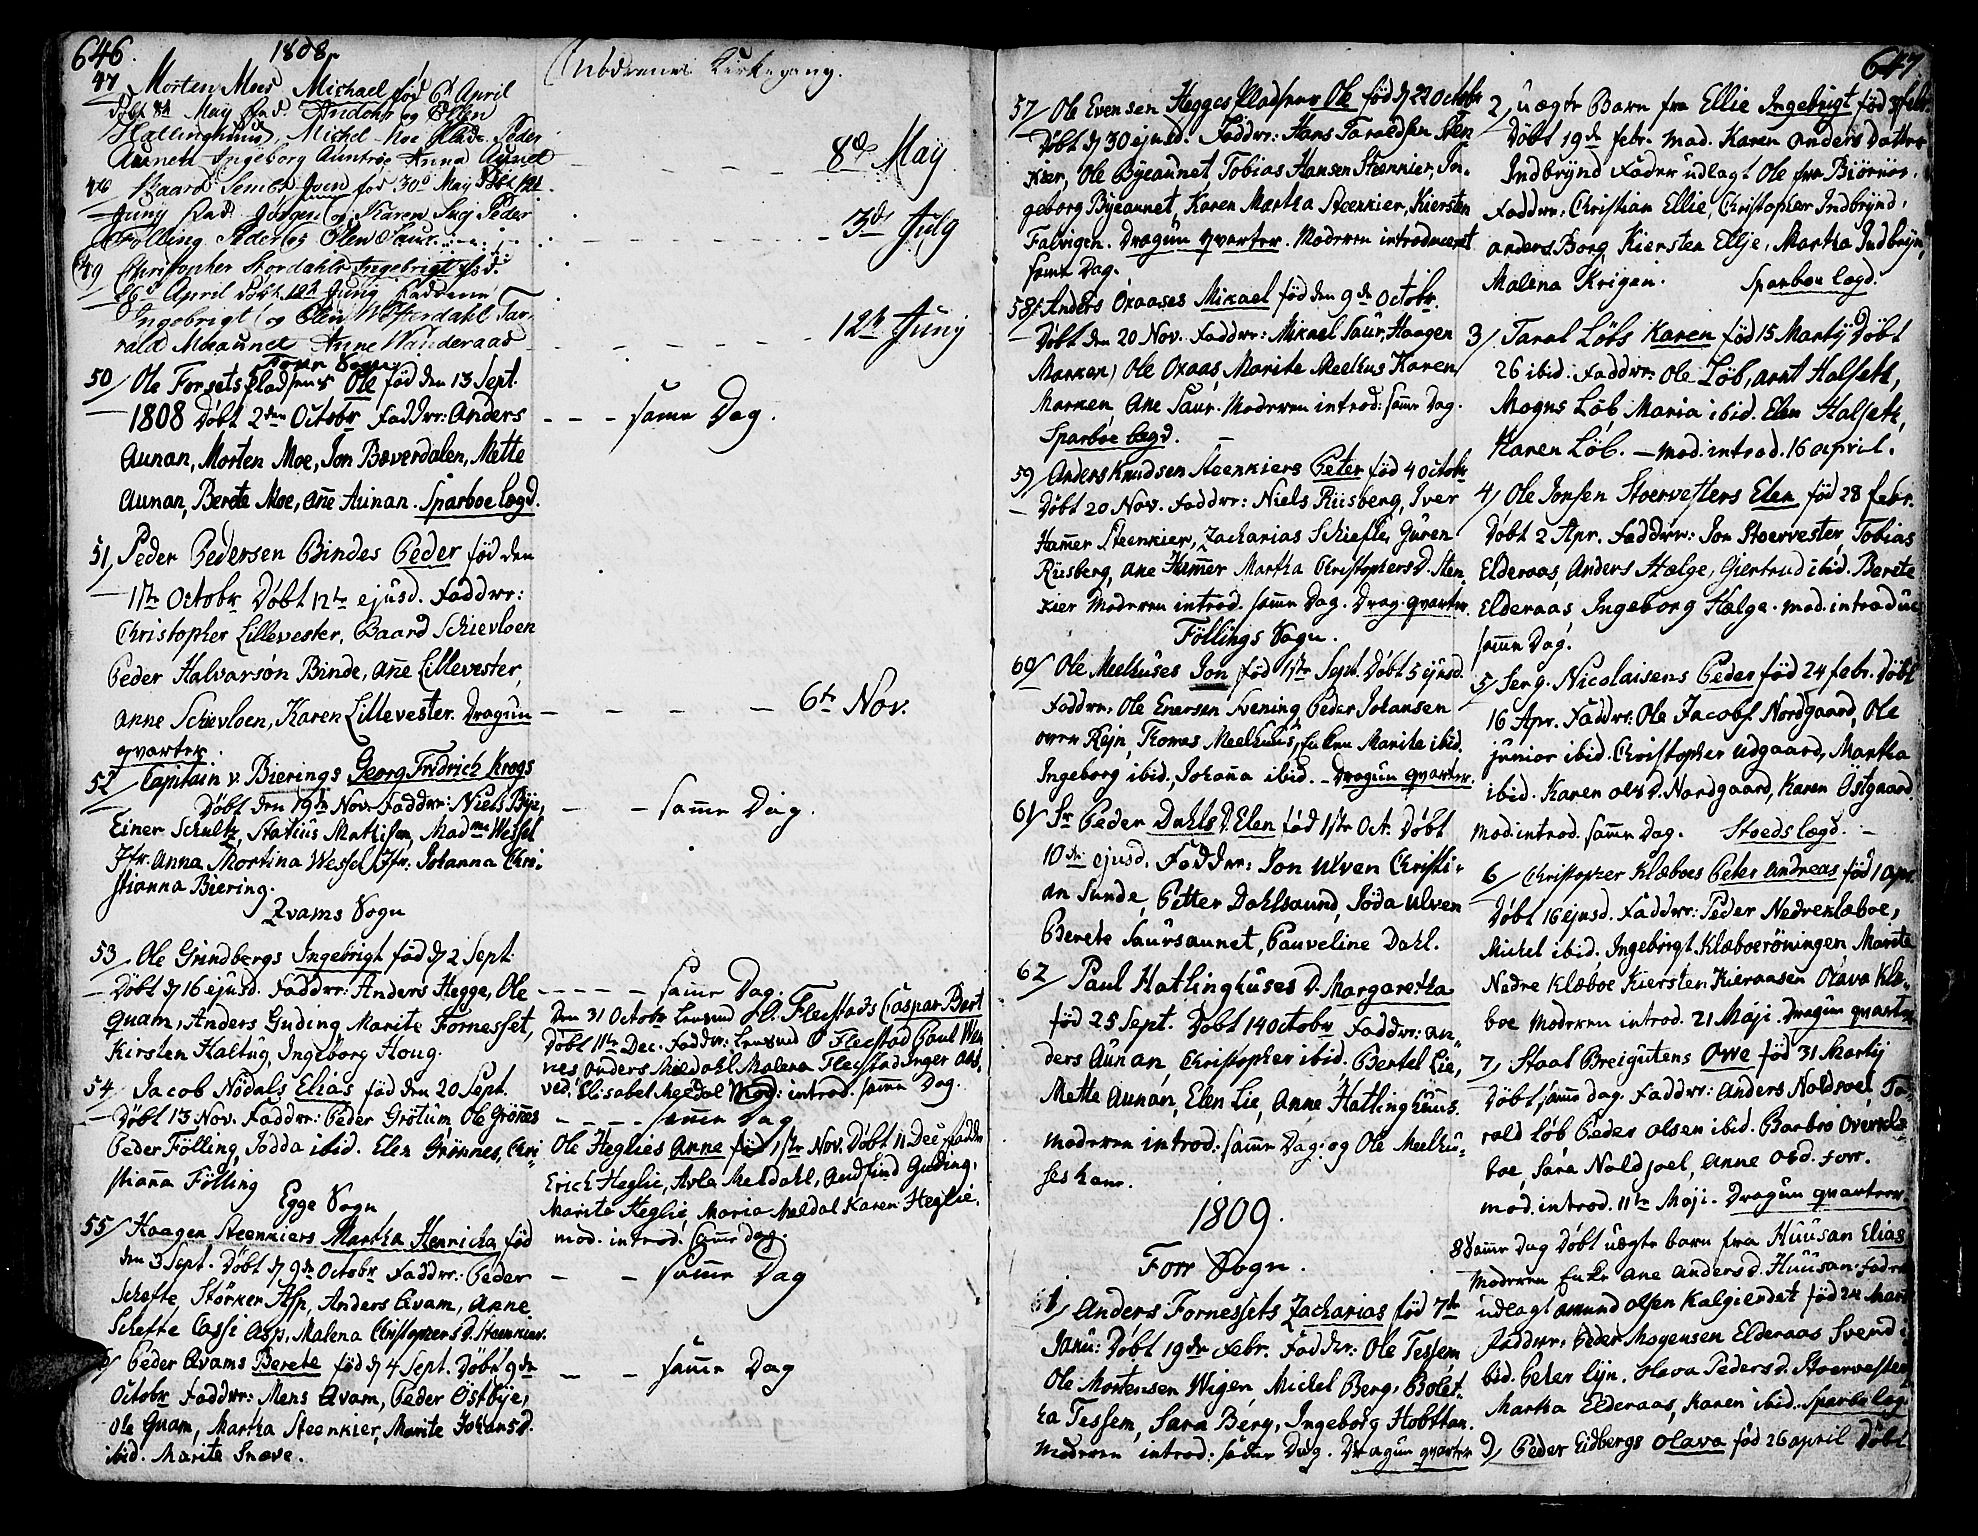 646.
1808.
47 Morten Moes Michael fød 6d April
Døbt 8d May Fad. Andors og Ellen
Hallinghuus, Michel Moe Plads. Peder
Aunet Ingeborg Auntrøe Anna Aunet
48 Baard Sembs Iver fød 30d May Døbt
Juny Fad. Jørgen og Karen Peder
Følling Peder og Olen Saur
49 Christopher Stordahls Ingebrigt fød.
26d April Døbt 12th Juny Fadderne
Ingebrigt og Olen Westerdahl Tar
rald Anne Wanderaas
Forr Sogn
50 Ole Forsets Pladsens Ole fød den 13 Sept.
1808 Døbt 2den Octobr Faddrr: Anders
Aunan, Morten Moe, Jon Bæverdalen, Mette
Aunan, Berete Moe, Ane Aunan. Sparboe lægd.
51, Peder Pedersen Bindes Peder fød den
1ste Octobr Døbt 12te ejusd. Faddrr:
Christopher Lillevester, Baard Schievloen
Peder Halvarsøn Binde, Ane Lillevester,
Anne Schievloen, Karen Lillevester. Dragun
qvarter.
52 Capitain v. Bierings Georg Fridrich Krogs
Døbt den 19de Nov. Faddrr: Niels Bije,
Einer Schultz, Statius Mathisen, Madme Wessel
Jfr. Anna Mortina Wessel Jfr: Johanna Chri-
stianna Biering.
Qvams Sogn
53 Ole Grindbergs Ingebrigt fød d 2 Sept.
Døbt d 16 ejusd. Faddrr: Anders Hegge, Ole
Quam, Anders Guding Marite Fornesset,
Kirsten Haltug, Ingeborg Houg.
54 Jacob Nødals Elias fød den 20 Sept.
Døbt 13 Nov. Faddrr: Peder Grøtum, Ole Grønnes
Peder Følling, Jødda ibid. Elen Grønnes, Chri-
stianna Følling
Egge Sogn
55 Haagen Steenkiers Martha Henricha fød
den 3 Sept. Døbt d 9de Octobr Faddrr: Peder
Schefte, Størker Asp, Anders Qvam, Anne
Schefte Cassi Asp, Malena Christophers D. Steenkier.
Peder Qvams Berete fød d 4 Sept. Døbt 9de
Octobr Faddrr: Mens Qvam, Peder Østbye,
Ole Quam, Martha Steenkier, Marite Johans D.
ibid. Marite Snæve.
Indbærnes Kirkegang.
8de May
3de July
12te Juny
samme Dag.
6te Nov.
samme Dag.
samme Dag.
Den 31 Octobr Lensmd O. Fleestads Caspar Bart
Døbt 11te Dec. Faddrr: Lensmd O Fleestad Paul Wen
nes Anders Meldahl Malena Fleestad Inger
Elisabet Meldal Mod: introd. samme Dag.
samme Dag
Ole Heglies Anne fød 1ste Nov. Døbt 11 Dec Faddr
Erich Heglie, Arla Meldahl, Andfind Guding,
Marite Heglie Maria Meldal Karen Heglie.
mod. introd. samme Dag.
samme Dag
samme Dag
647.
57 Ole Evensen Hegges Pladsens Ole fød d 22 Octobr
Døbt d 30 ejusd. Faddrr: Hans Taraldsen Steen
kier, Ole Byeaunet Tobias Hansen Steenkier, In-
geborg Byeaunet, Karen Martha Steenkier, Kiersten
Falvigen. Dragun qvarter. Moderen introduceret
samme Dag.
58 Anders Oxaases Mikael fød den 9de Octobr.
Døbt den 20 Nov. Faddrr: Mikael Saur, Haagen
Marken, Ole Oxaas, Marite Meelhus Karen
Marken, Ane Saur. Moderen introd: samme Dag.
Sparboe lægd.
59, Anders Knudsen Steenkiers Peter fød 4 Octobr
Døbt 20 Nov. Faddrr: Niels Riisberg, Iver
Hammer Steenkier, Zacharias Schiefte, Guren
Riisberg, Ane Hammer Martha Christophers D. Steen
kier Moderen introd. samme Dag. Drag. qvarter.
Föllings Sogn.
60 Ole Meelhuses Jon fød 1ste Sept. Døbt 5 ejusd.
Faddrr: Ole Enersen Svening Peder Johansen
oven Rejn, Tomas Meelhuus, Marite ibid.
Ingeborg ibid, Johanna ibid. - Dragun qvarter.
61 Sr Peder Dahls D. Elen fød 1ste Oct. Døbt
10de ejusd. Faddrr: Jon Ulven Christi-
an Sunde, Petter Dahlsaund, Jöda Ulven
Berete Saursaunet, Pauveline Dahl.
62 Paul Hatlinghuses D. Margaretha
fød 25 Sept. Døbt 14 Octobr Faddrr: An-
ders Aunan, Christopher ibid. Bertel Lie,
Mette Aunan, Elen Lie, Anne Hatlinghuus.
Moderen introd: samme Dag: og Ole Meelhu-
ses kone.
1809.
Forr Sogn.
1 Anders Fornessets Zacharias fød 7de
Janu: Døbt 19de Febr. Faddrr: Ole Tessem
Ole Mortensen Wigen Michel Berg, Bolet-
ta Tessem, Sara Berg, Ingeborg Hobstan.
Moderen introd: samme Dag. Dragun qvarter
2, uægte Barn fra Ellie Ingebrigt fød 3 Febr.
Døbt 19de Febr. Mod. Karen Anders Datter
Indbrynd Fader udlagt Ole fra Biørnør.
Faddrr: Christian Ellie, Christopher Indbrynd,
Anders Borg Kiersten Ellie, Martha Indbryn,
Malena Krigen. Sparboe lægd.
3, Taral Löbs Karen fød 15 Martij Døbt
26 ibid. Faddrr: Ole Löb, Arnt Halset,
Mogns Löb Maria ibid. Elen Halset,
Karen Löb. - mod. introd. 16 April.
4, Ole Jonsen Stoervesters Elen fød 28 Febr.
Døbt 2 Apr. Faddrr: Jon Stoervester, Tobias
Elderaas, Anders Hælge, Giertrud ibid. Berete
Elderaas, Ingeborg Hælge. mod. introduc
samme Dag.
5 Serg. Nicolaisens Peder fød 24 Febr. Døbt
16 Apr. Faddrr: Ole Jacobs. Nordgaard, Ole
junior ibid. Christopher Udgaard, Martha
ibid. Karen Ols D. Nordgaard, Karen Östgaard.
Mod. introd. samme Dag. Stoeds lægd. -
6 Christopher Klæboes Peter Andreas fød 1 Apr.
Døbt 16 ejusd. Faddrr: Peder Nedreklæboe,
Michel ibid. Ingebrigt Klæboeröningen Marite
Nedre Klæboe Kiersten Kieraasen Olava Klæ-
boe Moderen introd. 21 Maji. Dragun qvarter
7, Staal Breiguttens Owe fød 31 Martij
Døbt samme Dag. Faddrr: Anders Noldsoel, Ta-
rald Löb Peder Olsen ibid. Barbro Overklæ
boe, Sara Noldsoel, Anne Ol D. Forr.
Mod. introd. 11te Maji. Dragun qvarter.
8 samme Dag Døbt uægte barn fra Huusan Elias
Moderen Enke Ane Anders D. Huusan. Fader
udlagt Amund Olsen Kalgierdet fød 24 Mart
Faddrr: Peder Mogensen Elderaas Svend i-
bid. Peter Lyn. Olava Peders D. Stoervester,
Martha Elderaas, Karen ibid. Sparbo læg
9, Peder Eidbergs Olava fød 26 April Døbt